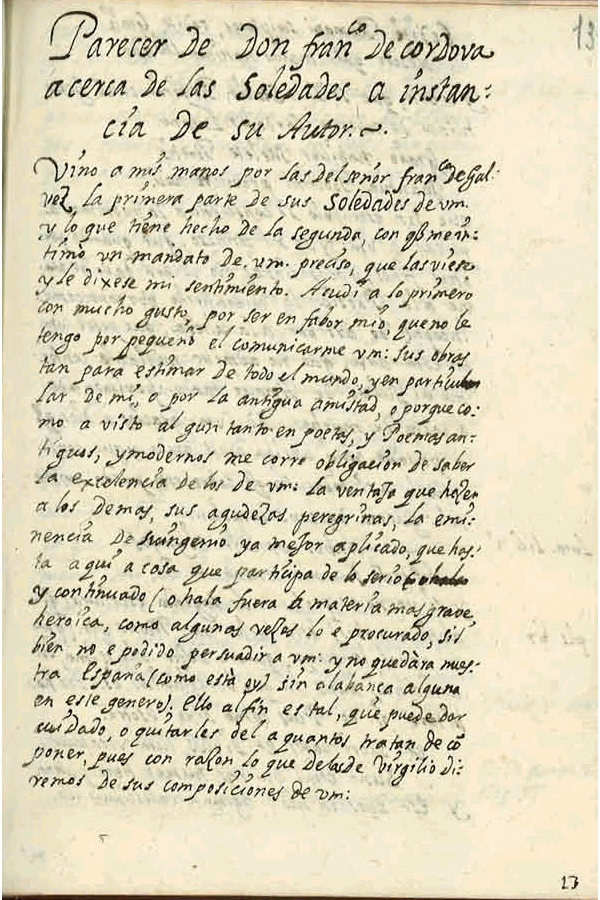 13
Parecer de Don fran^co de cordova
acerca de las Soledades a instan:
cia de su Autor.
Vino a mis manos por las del señor fran^co de Gal:
vez, la primera parte de sus Soledades de vm.
y lo que tiene hecho de la segunda, con q̃ me in:
timò vn mandato de vm. preciso, que las viese
y le dixese mi sentimiento. Acudi a lo primero
con mucho gusto, por ser en fabor mio, que no le
tengo por pequeño el comunicarme vm: sus obras
tan para estimar de todo el mundo, y en particu
lar de mi, o por la antigua amistad, o porque co:
mo a visto algun tanto en poetas, y Poemas an:
tiguos, y modernos me corre obligacion de saber
la excelencia de los de vm: la ventaja que hazen
a los demas, sus agudezas peregrinas, la emi:
nencia de su ingenio ya mejor aplicado, que has:
ta aqui a cosa que participa de lo serio
y continuado (o hala fuera la materia mas grave
heroica, como algunas vezes lo e procurado, si
bien no e podido persuadir a vm: y no quedàra nues:
tra España (como està oy) sin alabança alguna
en este genero). Ello al fin es tal, que puede dar
cuidado, o quitarles del a quantos tratan de cõ
poner, pues con razon lo que de las de Virgilio di:
remos de sus composiciones de vm:
13